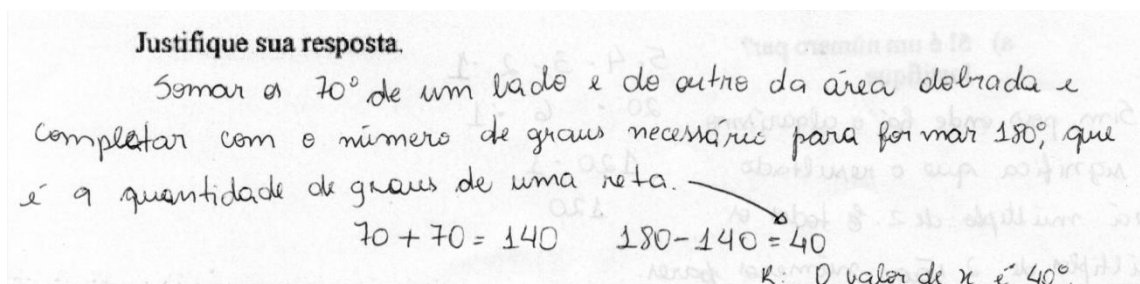 Justifique sua resposta.
Somar os 70° de um lado e do outro da área dobrada e
completar com o número de graus necessário para formar 180°, que
é a quantidade de graus de uma reta.
70 + 70 = 140 180 - 140 = 40
R: O valor de x é 40°.